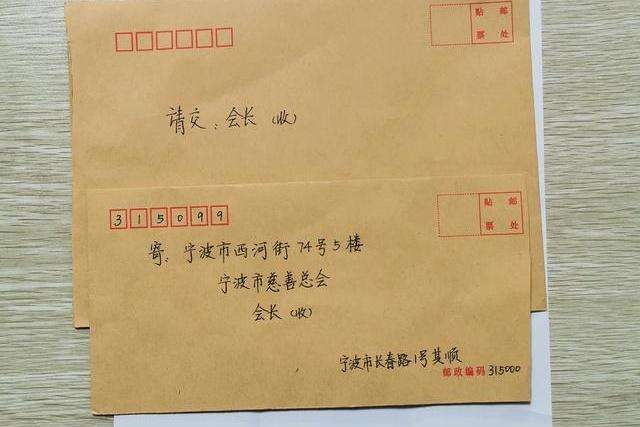 贴 邮
票 处
请交:会长(收)
315099
贴 邮
票 处
寄:宁波市西河街74号5楼
宁波市慈善总会
会长(收)
宁波市长春路1号其顺
邮政编码 315000